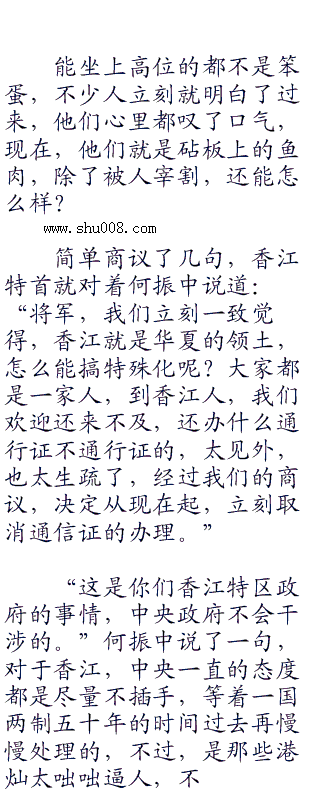 能坐上高位的都不是笨
蛋，不少人立刻就明白了过
来，他们心里都叹了口气，
现在，他们就是砧板上的鱼
肉，除了被人宰割，还能怎
么样？
www.shu008.com
简单商议了几句，香江
特首就对着何振中说道：
“将军，我们立刻一致觉
得，香江就是华夏的领土，
怎么能搞特殊化呢？大家都
是一家人，到香江人，我们
欢迎还来不及，还办什么通
行证不通行证的，太见外，
也太生疏了，经过我们的商
议，决定从现在起，立刻取
消通信证的办理。”
“这是你们香江特区政
府的事情，中央政府不会干
涉的。”何振中说了一句，
对于香江，中央一直的态度
都是尽量不插手，等着一国
两制五十年的时间过去再慢
慢处理的，不过，是那些港
灿太咄咄逼人，不